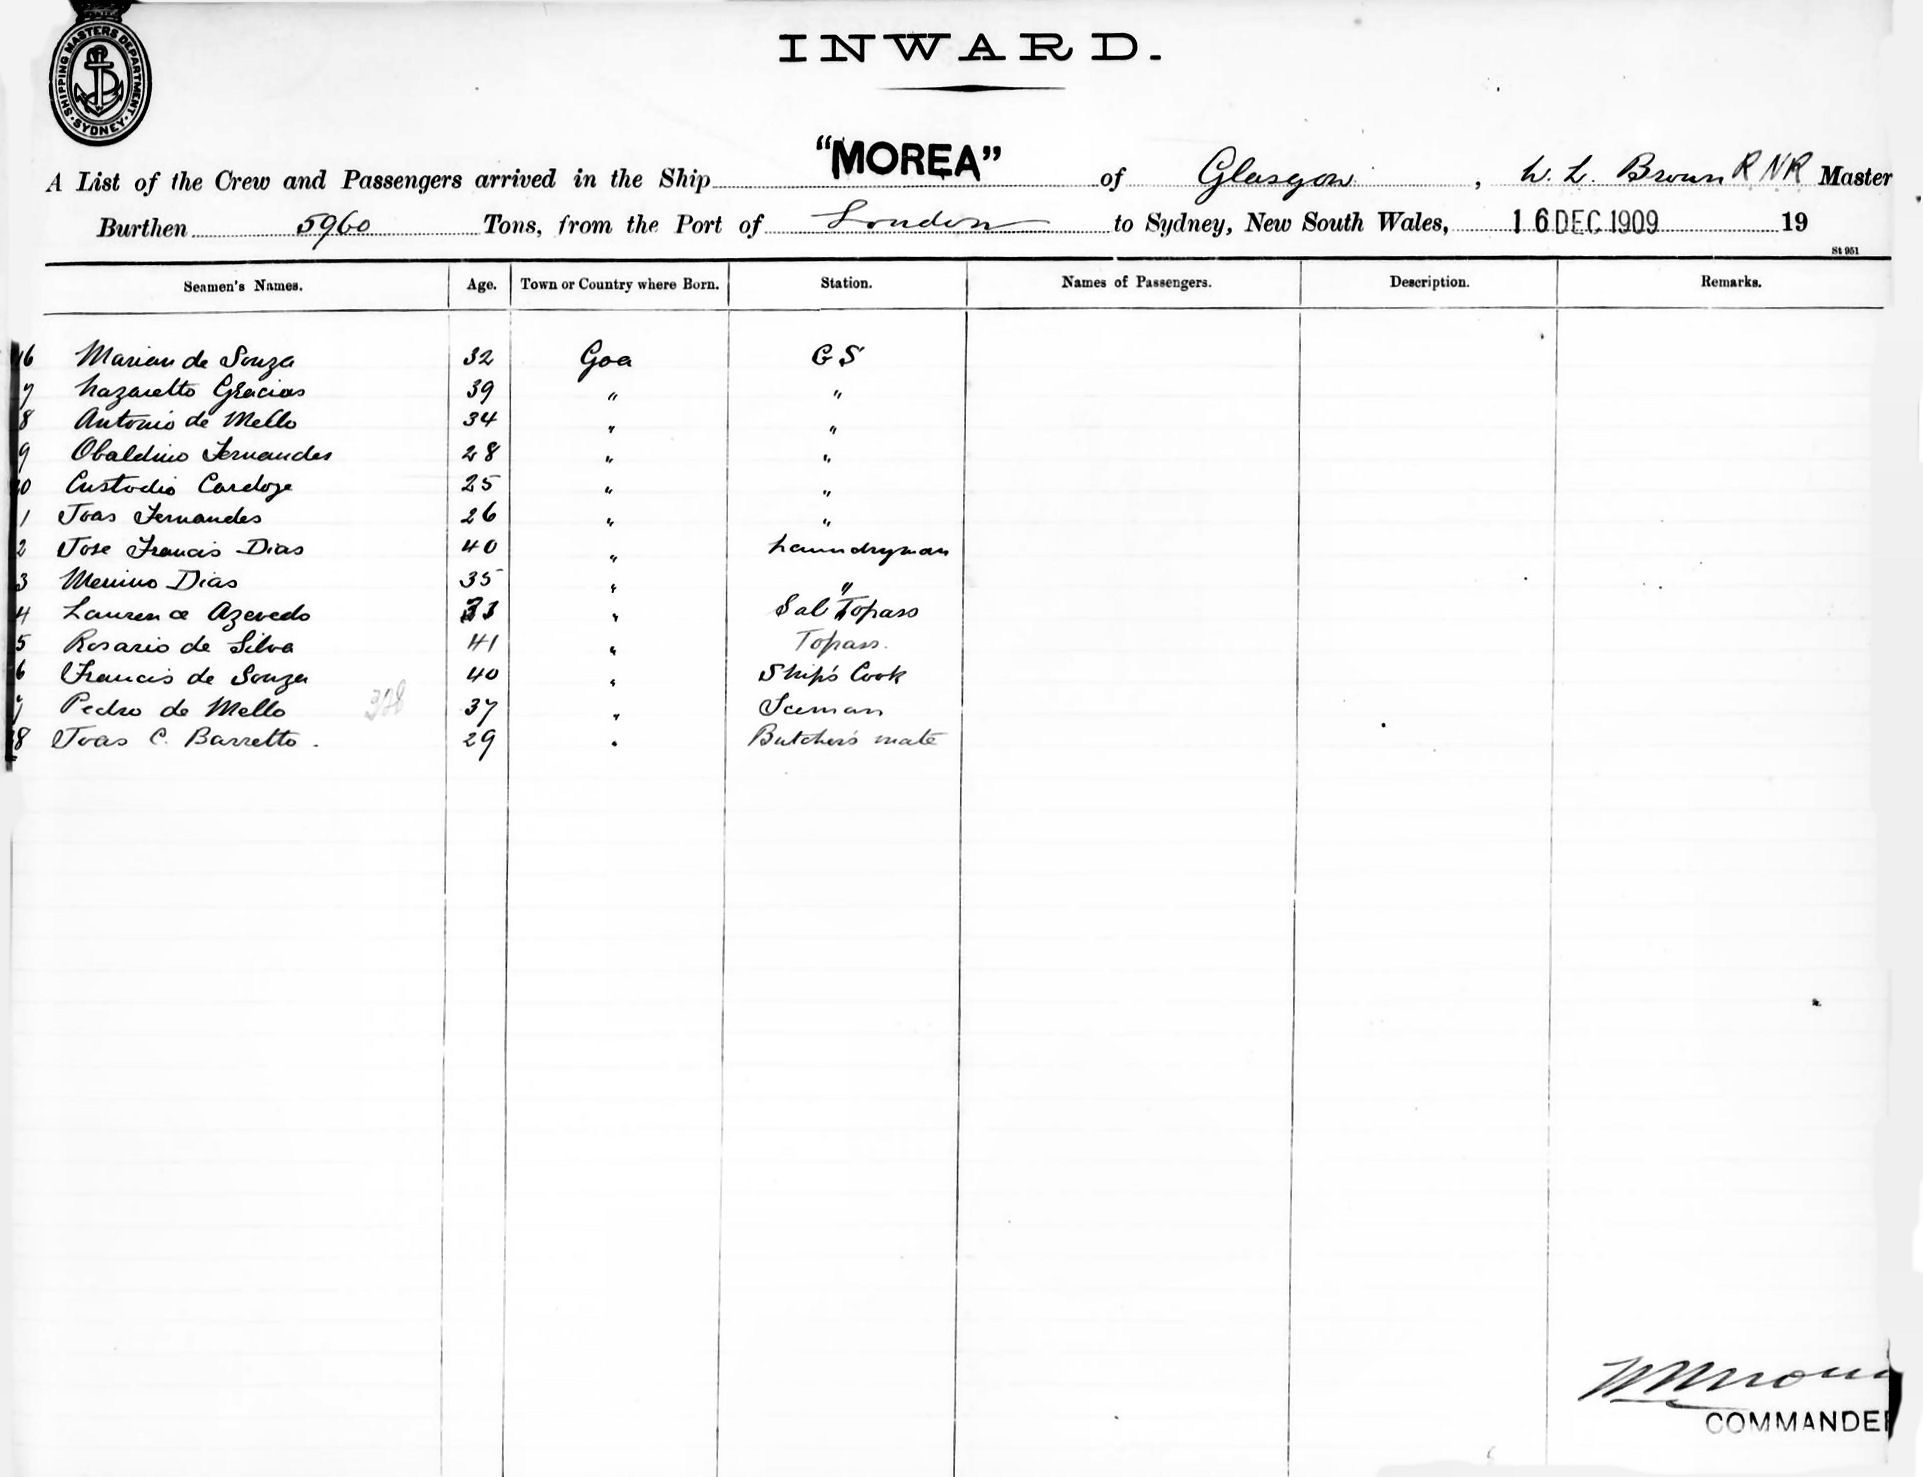 SHIPPING MASTERS DEPARTMENT
SYDNEY
INWARD.
A List of the Crew and Passengers arrived in the Ship "MOREA" of Glasgow, W. L. Brown RNR Master
Burthen 5960 Tons, from the Port of London to Sydney, New South Wales, 16 DEC 1909 19
St 951
Seamen's Names. Age. Town or Country where Born. Station. Names of Passengers. Description. Remarks.
16 Marian de Souza 32 Goa G S
7 Nazaretto Gracias 39 " "
8 Antonio de Mello 34 " "
9 Obaldino Fernandes 28 " "
0 Custodio Cardoze 25 " "
1 Joas Fernandes 26 " "
2 Jose Francis Dias 40 " Laundryman
3 Menino Dias 35 " "
4 Laurence Azevedo 33 " Sal Topass
5 Rosario de Silva 41 " Topass.
6 Francis de Souza 40 " Ship's Cook
7 Pedro de Mello 37 " Iceman
8 Joas C. Barretto. 29 " Butcher's mate
COMMANDER